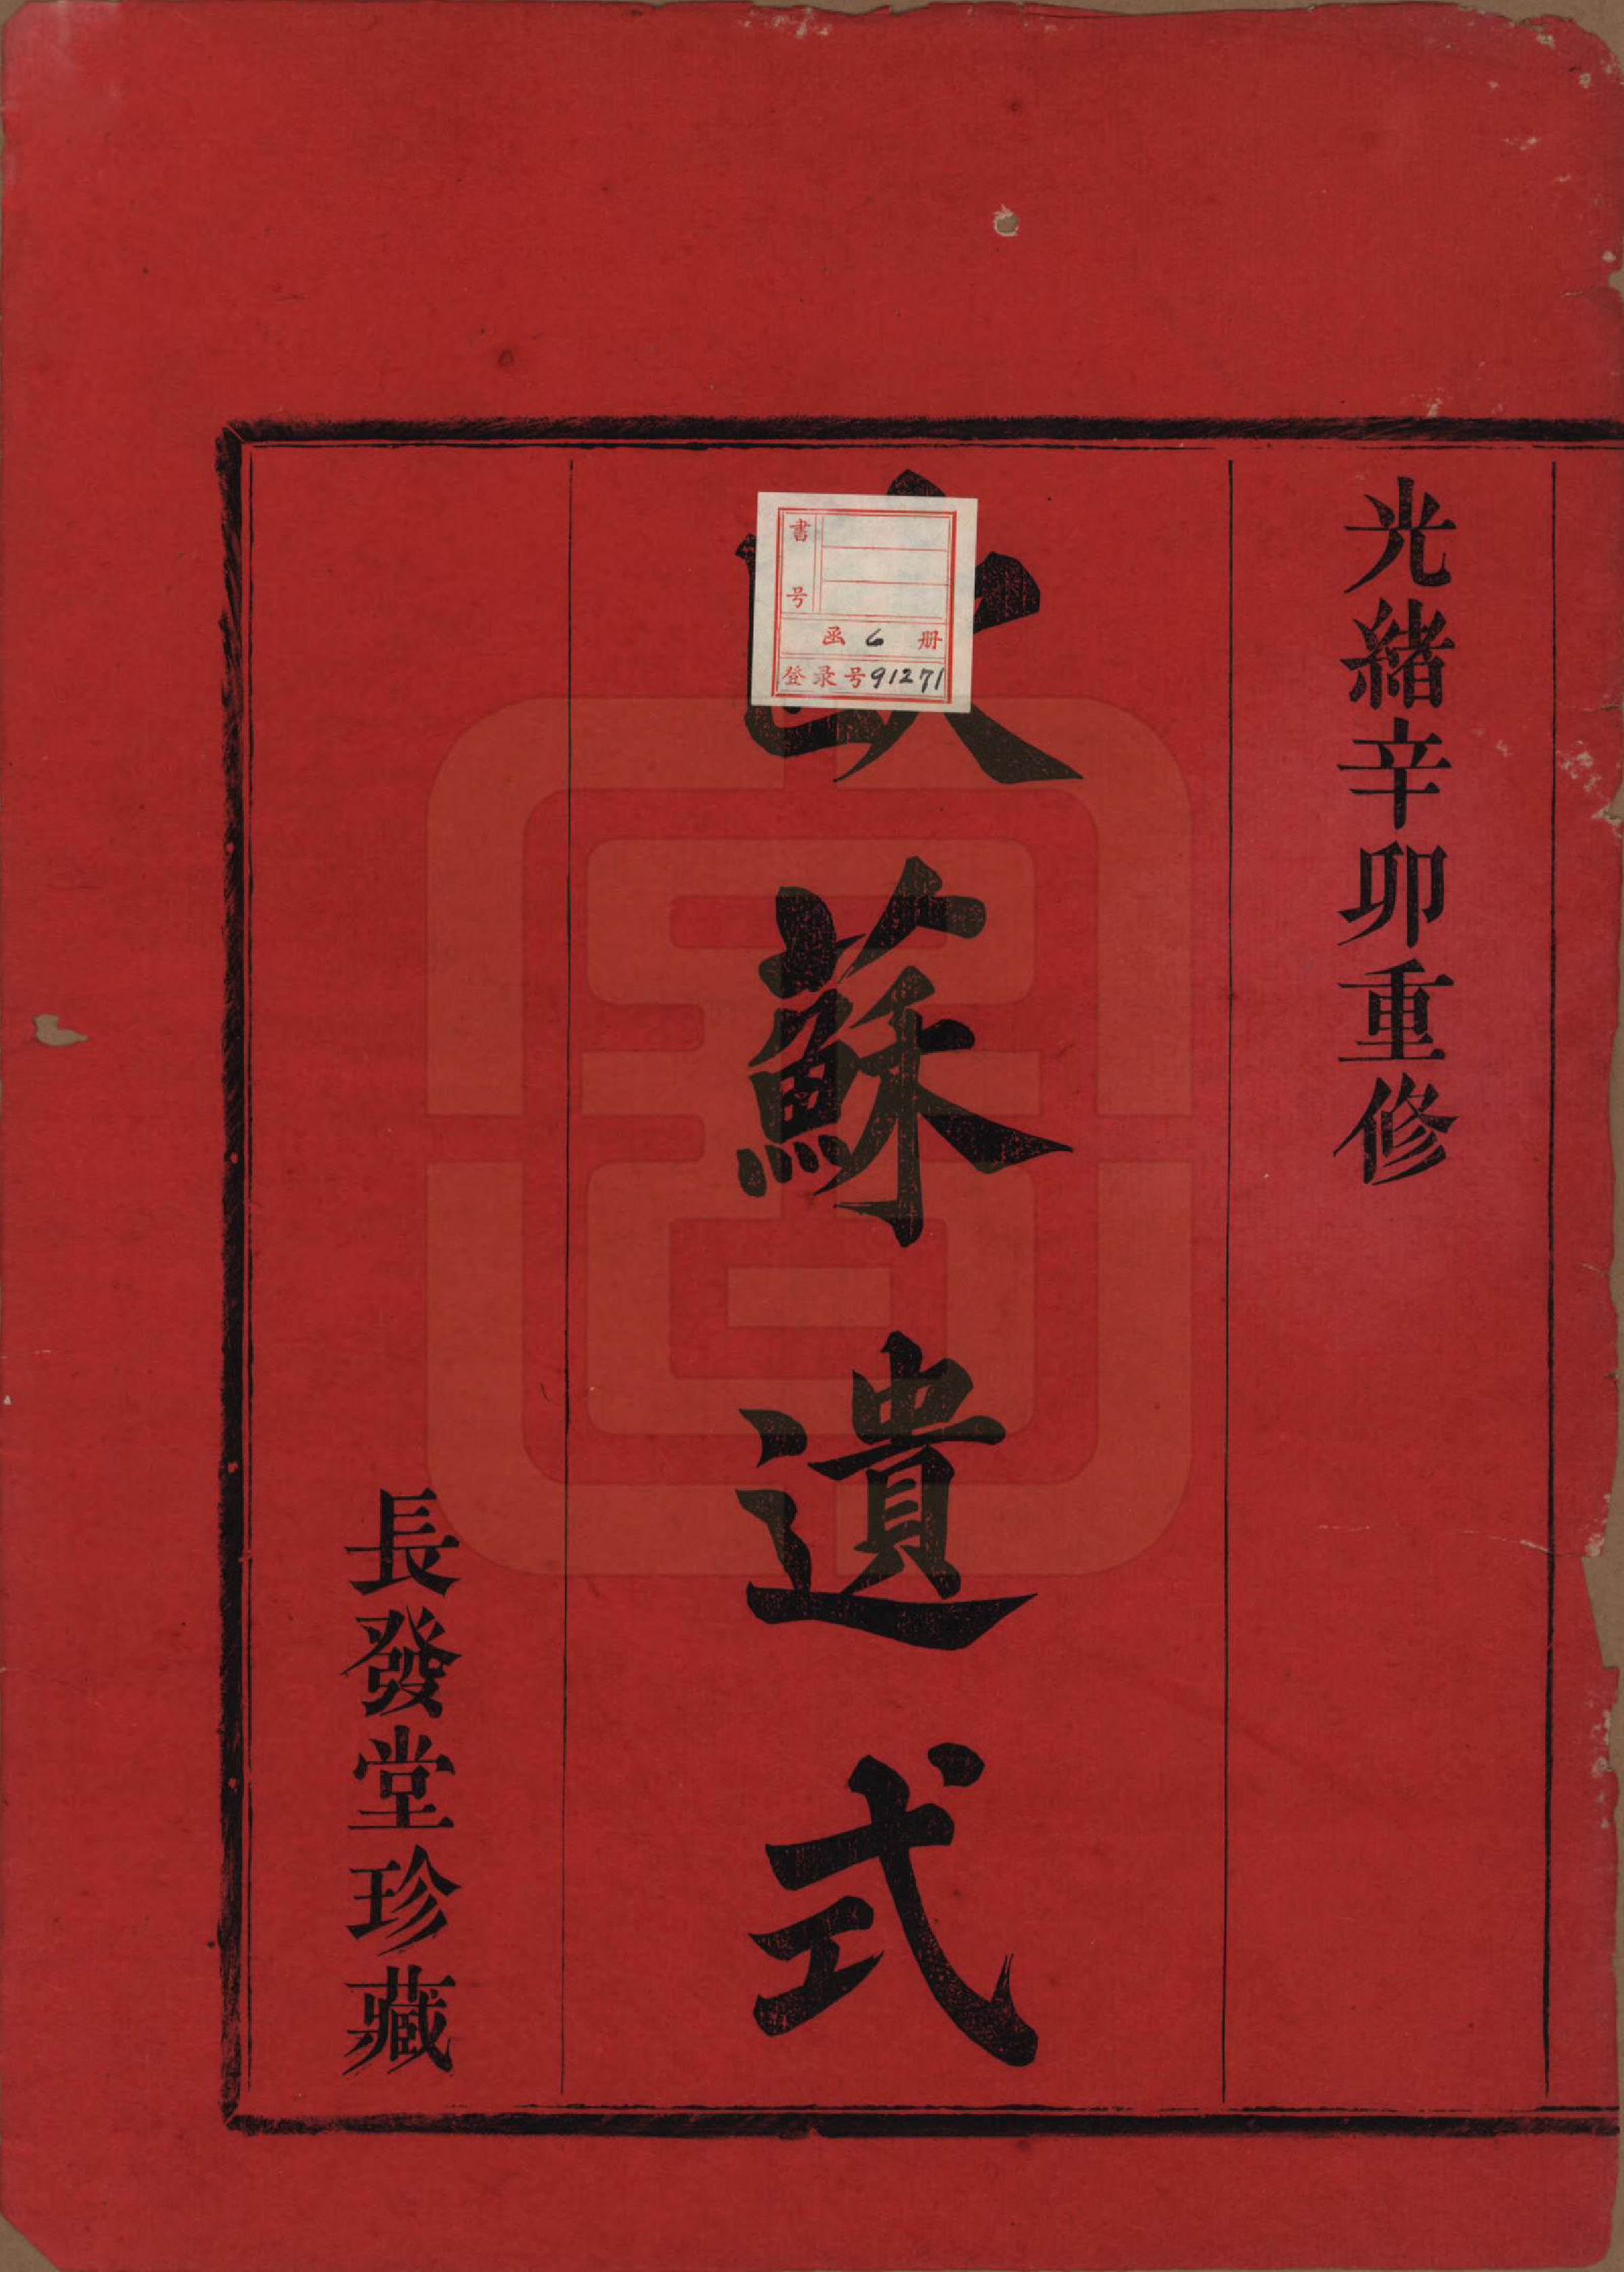 光緒辛卯重修
蘇遺式
長發堂珍藏
書号
函 6 册
登录号91271